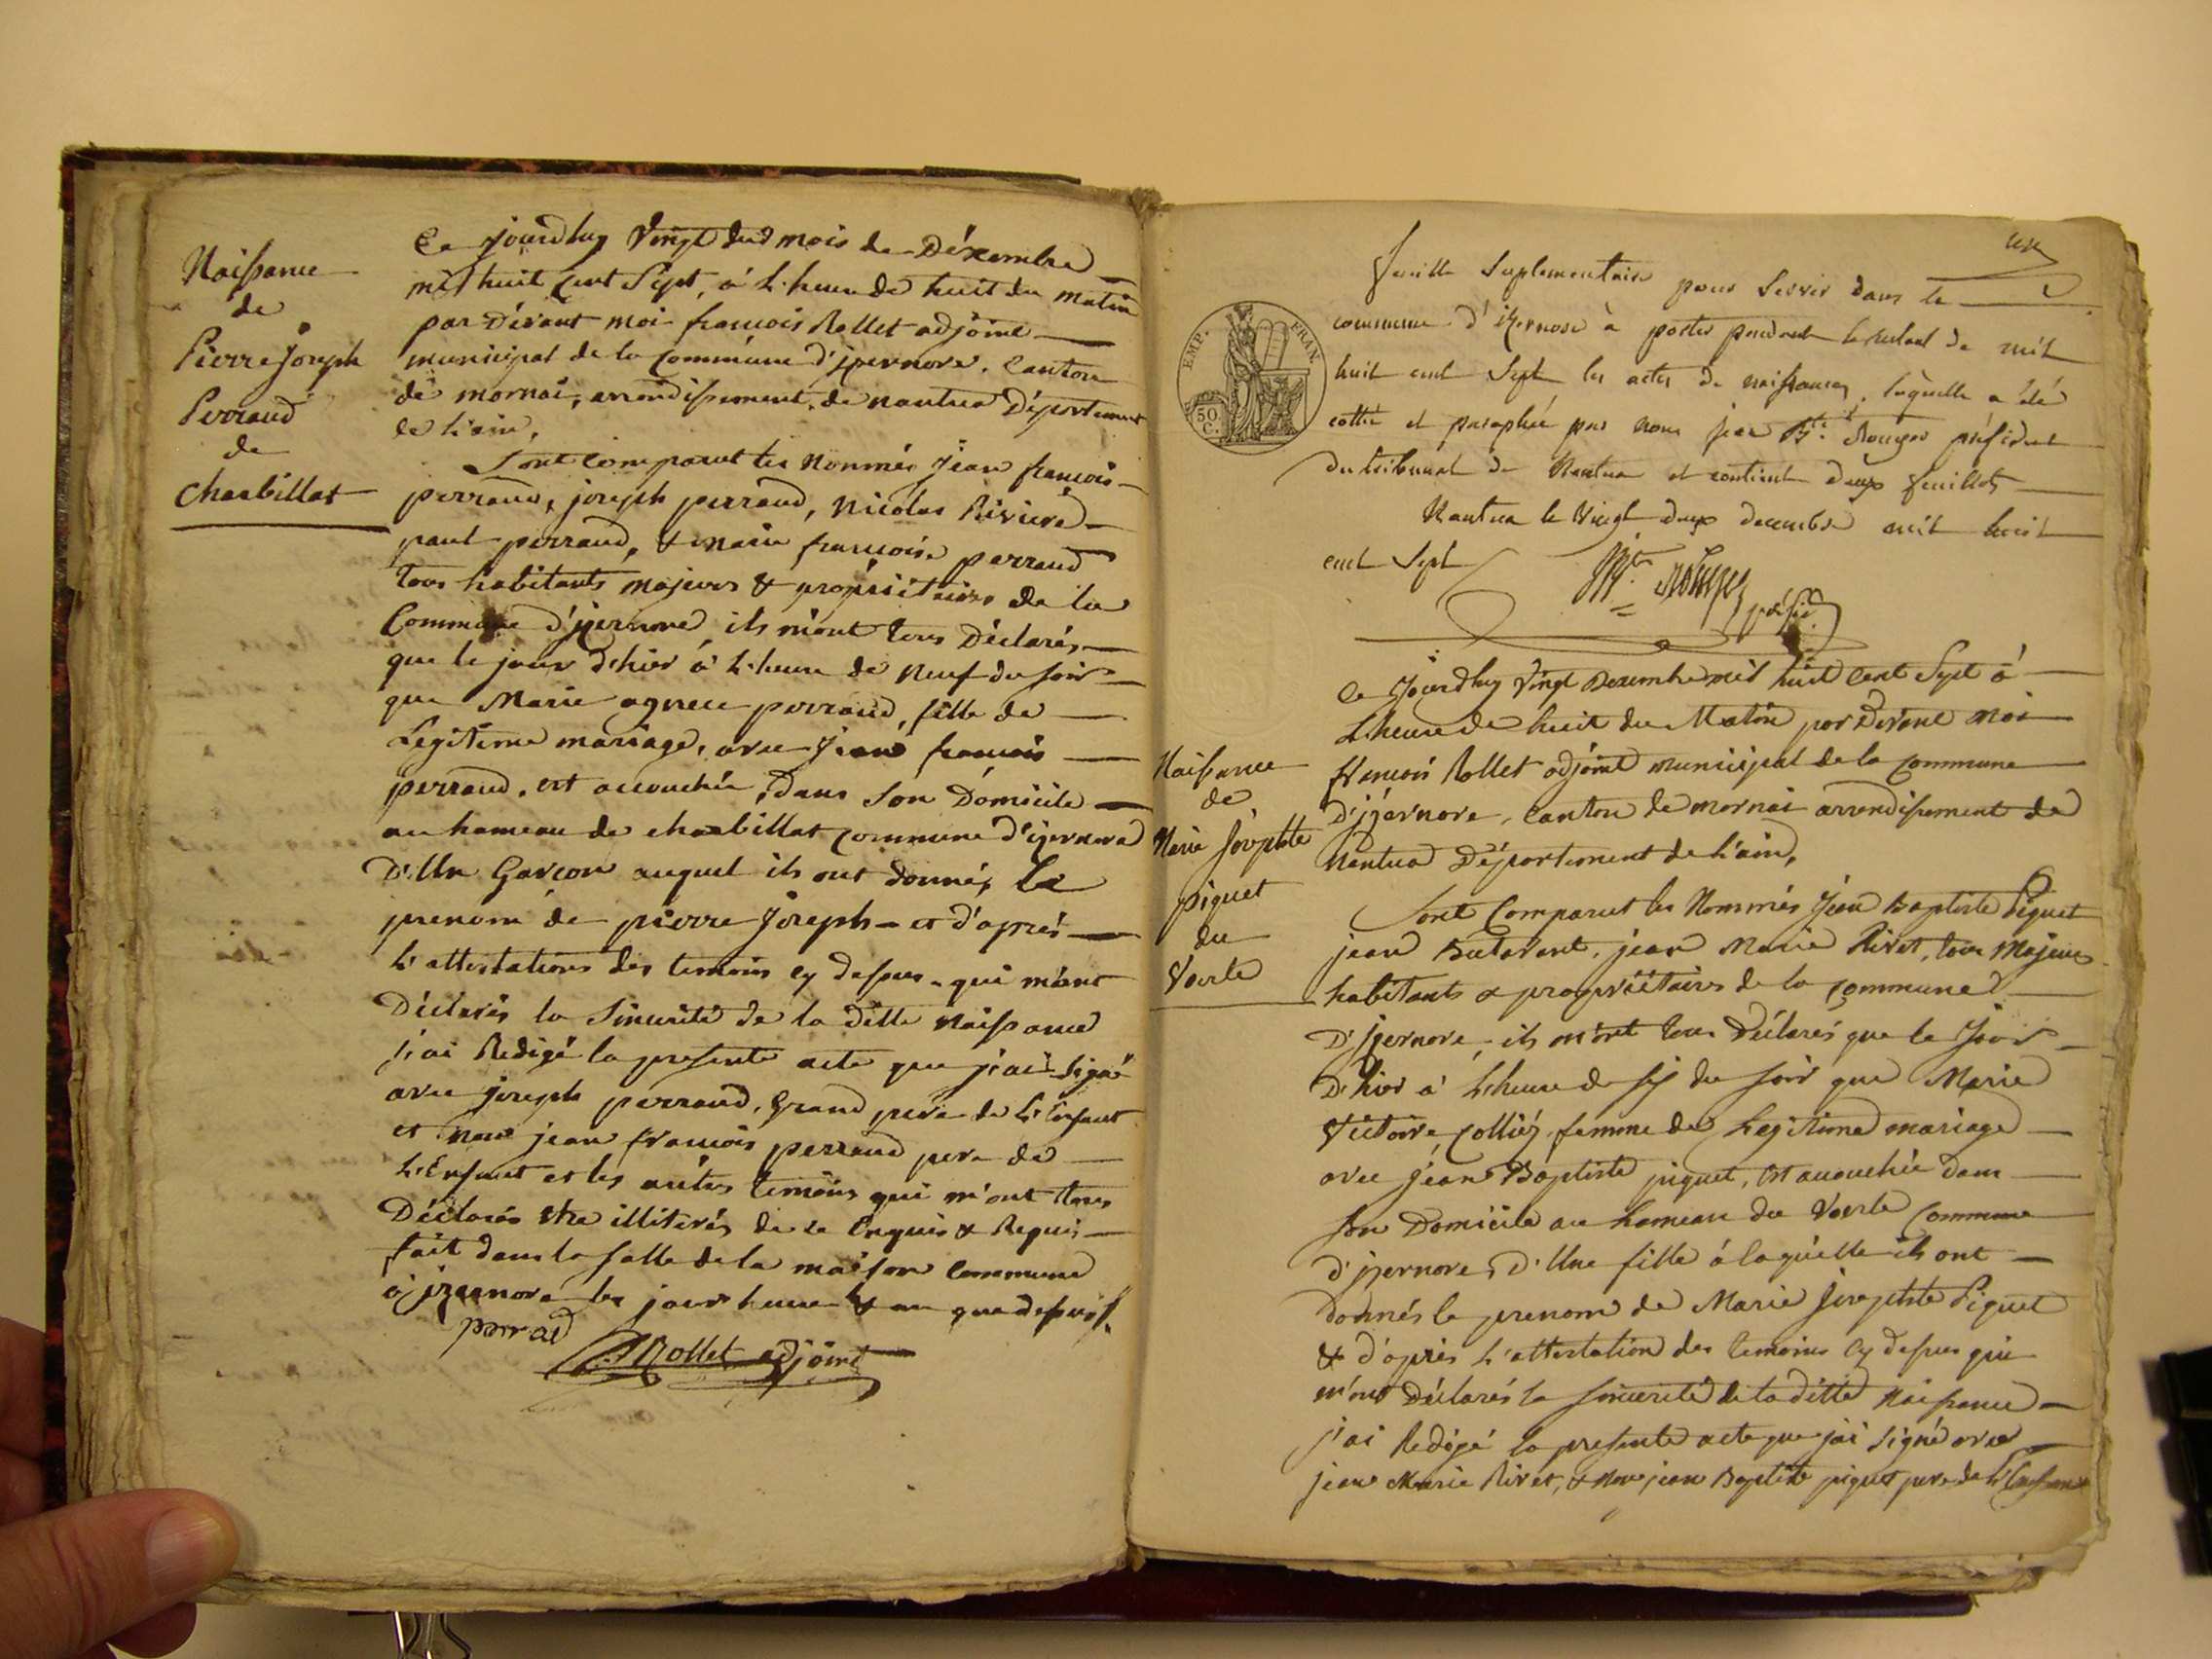 Naissance
de
Pierre Joseph
Perraud
de
Charbillat
Ce jourdhuy Vingt dud mois de Déxembre
mil huit Cent Sept, á L'heure de huit du matin
par dévant moi francois Rollet adjoint
municipal de la Commune d'jzernore, Canton
de mornai, arrondissement de nantua Département
de L'ain,
Sont Comparut les Nommés Jean francois
perraud, joseph perraud, Nicolas Riviere
paul perraud, & marie francoise perraud
tous habitants majeurs & propriétaires de la
Commune d'jzernore ils m'ont tous Déclarés
que le jour d'hier á L'heure de Neuf du soir
que Marie agnece perraud, fille de
Legitime mariage, avec Jean francois
perraud, est accouchée, dans son Domicile
au hameau de charbillat commune d'izernore
D'Un Garcon auquel ils ont donnés Le
prenom de pierre Joseph et d'aprés
L'attestations des temoins cy dessus qui m'ont
Déclarés la Sincerité de la ditte Naissance
j'ai Redigé la presente acte que j'ai Signé
avec joseph perraud, Grand pere de L'Enfant
et non jean francois perraud pere de
L'Enfant et les autres temoins qui m'ont tous
Déclarés être illiterés de ce Enquis & Requis
fait dans la salle de la maison Commune
á jzernore les jour heure & an que dessus
perraud
Rollet adjoint
une
feuille Suplementaire pour Servir dans la
commune d'izernore à porter pendant le restant de mil
huit cent Sept les actes de naissances, laquelle a été
cottée et paraphée par nous jean Bte. Rouyer président
du tribunal de Nantua et contient deux feuillets
Nantua le Vingt deux decembre mil huit
cent Sept
EMP. FRAN.
50 C.
Ce Jourdhuy Vingt Dexembre mil huit Cent Sept á
L'heure de huit du Matin par devant moi
francois Rollet adjoint municipal de la Commune
d'jzernore, Canton de mornai arrondissement de
Nantua Département de L'ain,
Naissance
de
Marie Jósephte
piguet
du
Voerle
Sont Comparut les Nommés Jean Baptiste Piguet
jean Butavant, jean Marie Rivet, tous Majeurs
habitants & propriétaires de la Commune
D'jzernore, ils m'ont tous Déclarés que le Jour
D'hier á L'heure de six du soir que Marie
Victoire Colliéz femme de Legitime mariage
avec jean Baptiste piguet, est accouchée dans
son Domicile au hameau du Voerle Commune
d'jzernore, D'Une fille á laquelle ils ont
donnés le prenom de Marie Josephte Piguet
& d'aprés L'attestation des temoins Cy dessus qui
m'ont Déclarés la sincerité de la ditte Naissance
j'ai Redigé la presente acte que j'ai Signé avec
jean Marie Rivet, & non jean Baptiste piguet pere de L'Enfant